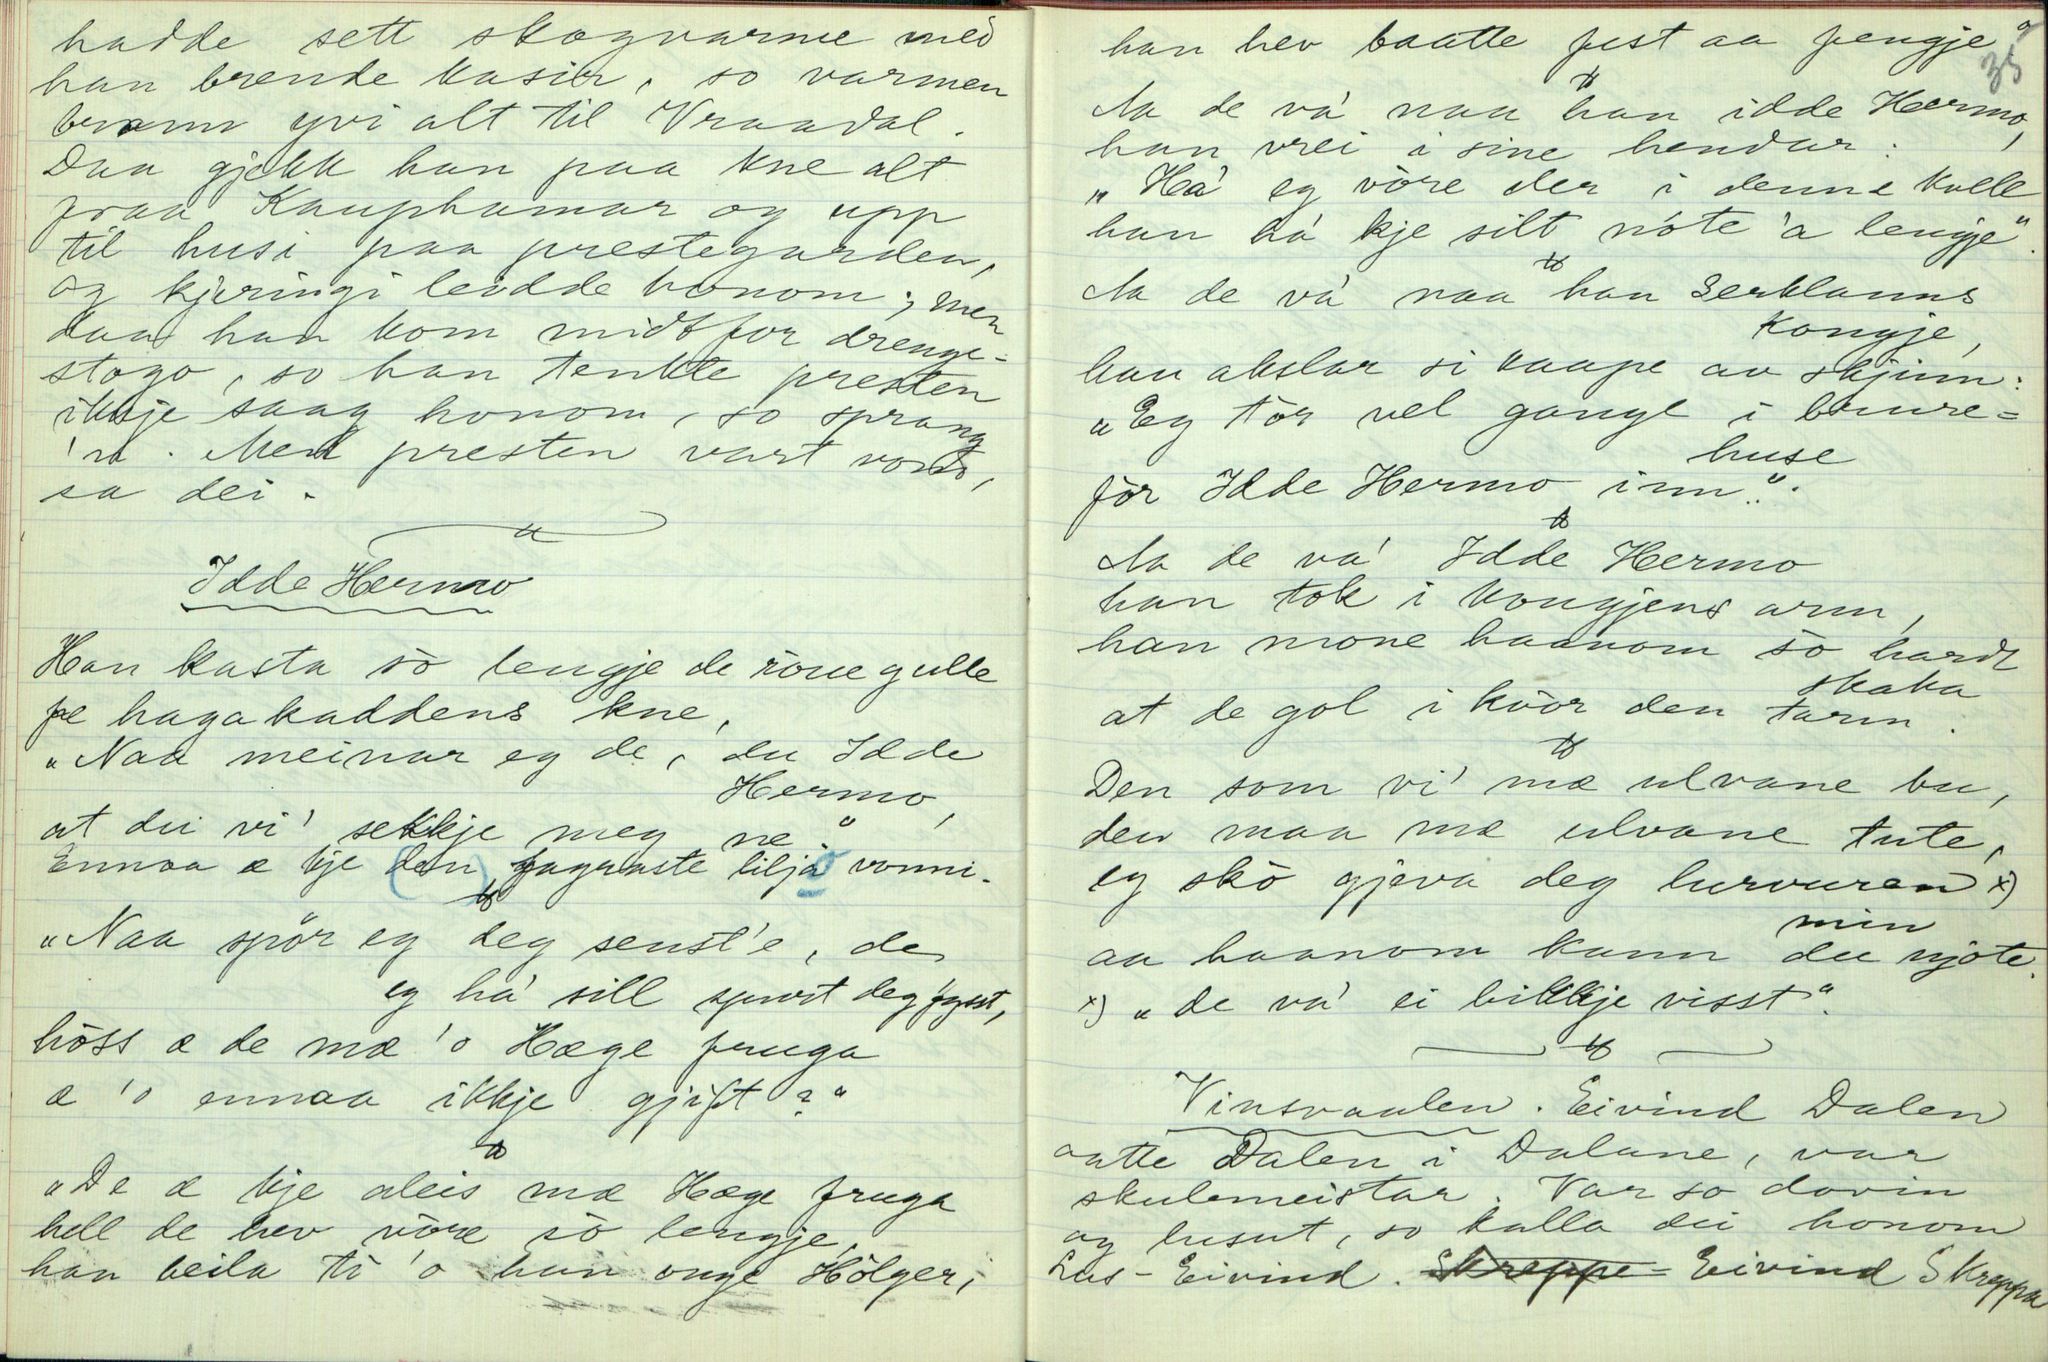 hadde sett skogvarme med
han brende kasir, so varmen
brann yvi alt til Vraadal.
Daa gjekk han paa kne alt
fraa Kauphamar og upp
til husi paa prestegarden,
og kjeringi leidde honom; men
daa han kom midt for drenge-
stogo, so han tenkte presten
ikkje saag honom, so sprang
'n. Men presten vart vond,
sa dei.
Idde Hermo
Han kasta sò lengje de röue gulle
pe hagakaddens kne,
"Naa meinar eg de, du Idde
Hermo,
at du vi' sekkje meg ne"
Ennaa æ kje (den) fagraste lilja vonni.
"Naa spör eg deg senst'e, de
eg há sill spurt deg fysst,
hòss æ de mæ 'o Hæge fruga
æ 'o ennaa ikkje gjift?"
"De æ kje aleis mæ Hæge fruga
hell de hev vòre sò lengje,
han beila ti 'o han onge Hölger,
35
han hev baatte fest aa fengje"
Aa de vá naa han idde Hermo,
han vrei i sine hendar:
"Há eg vòre der i denne kalle
han há kje silt nóte 'a lengje".
Aa de vá naa han Serklanns
kongje,
han akslar si kaape av skjinn:
"Eg tòr vel gange i brure-
huse
för Idde Hermo inn".
Aa de vá Idde Hermo
han tok i kongjens arm,
han mone haanom sò hardt
skaka
at de gol i kvòr den tarm.
Den som vi' mæ ulvane bu,
den maa mæ ulvane tute,
eg skò gjeva deg hurvuren x)
min
aa haanom kann du njote.
x) "de vá ei bikkje visst".
Vinsvaalen. Eivind Dalen
aatte Dalen i Dalane, var
skulemeistar. Var so dovin
og lusut, so kalla dei honom
Lus-Eivind. Skreppe- Eivind Skreppa